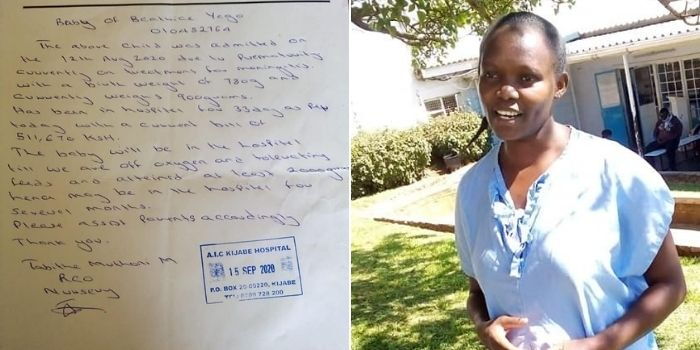 Baby of Beatrice Yego
010432764
The above child was admitted on
the 12th Aug 2020 due to prematurity
currently on treatment for meningitis.
with a birth weight of 780g and
currently weighs 900grams.
Has been in hospital for 33days as per
today with a current bill of
511,670 KSH.
The baby will be in the hospital
till we are off oxygen and tolerating
feeds and attained at least 2000gm
hence may be in the hospital for
several months.
Please assist parents accordingly
Thank you.
Tabitha Muthoni M
RCO
Nursery
A.I.C KIJABE HOSPITAL
15 SEP 2020
P.O. BOX 20-00220, KIJABE
728 200